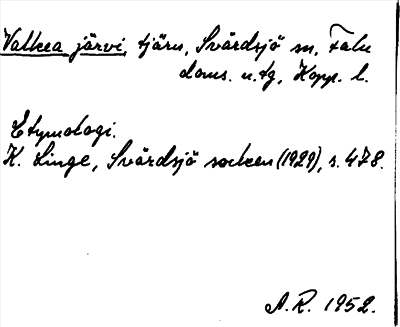 Valkea järvi, tjärn, Svärdsjö sn, Falu
doms. u. tg, Kopp. l.
Etymologi.
K. Linge, Svärdsjö socken (1929), s. 478.
A.R. 1952.